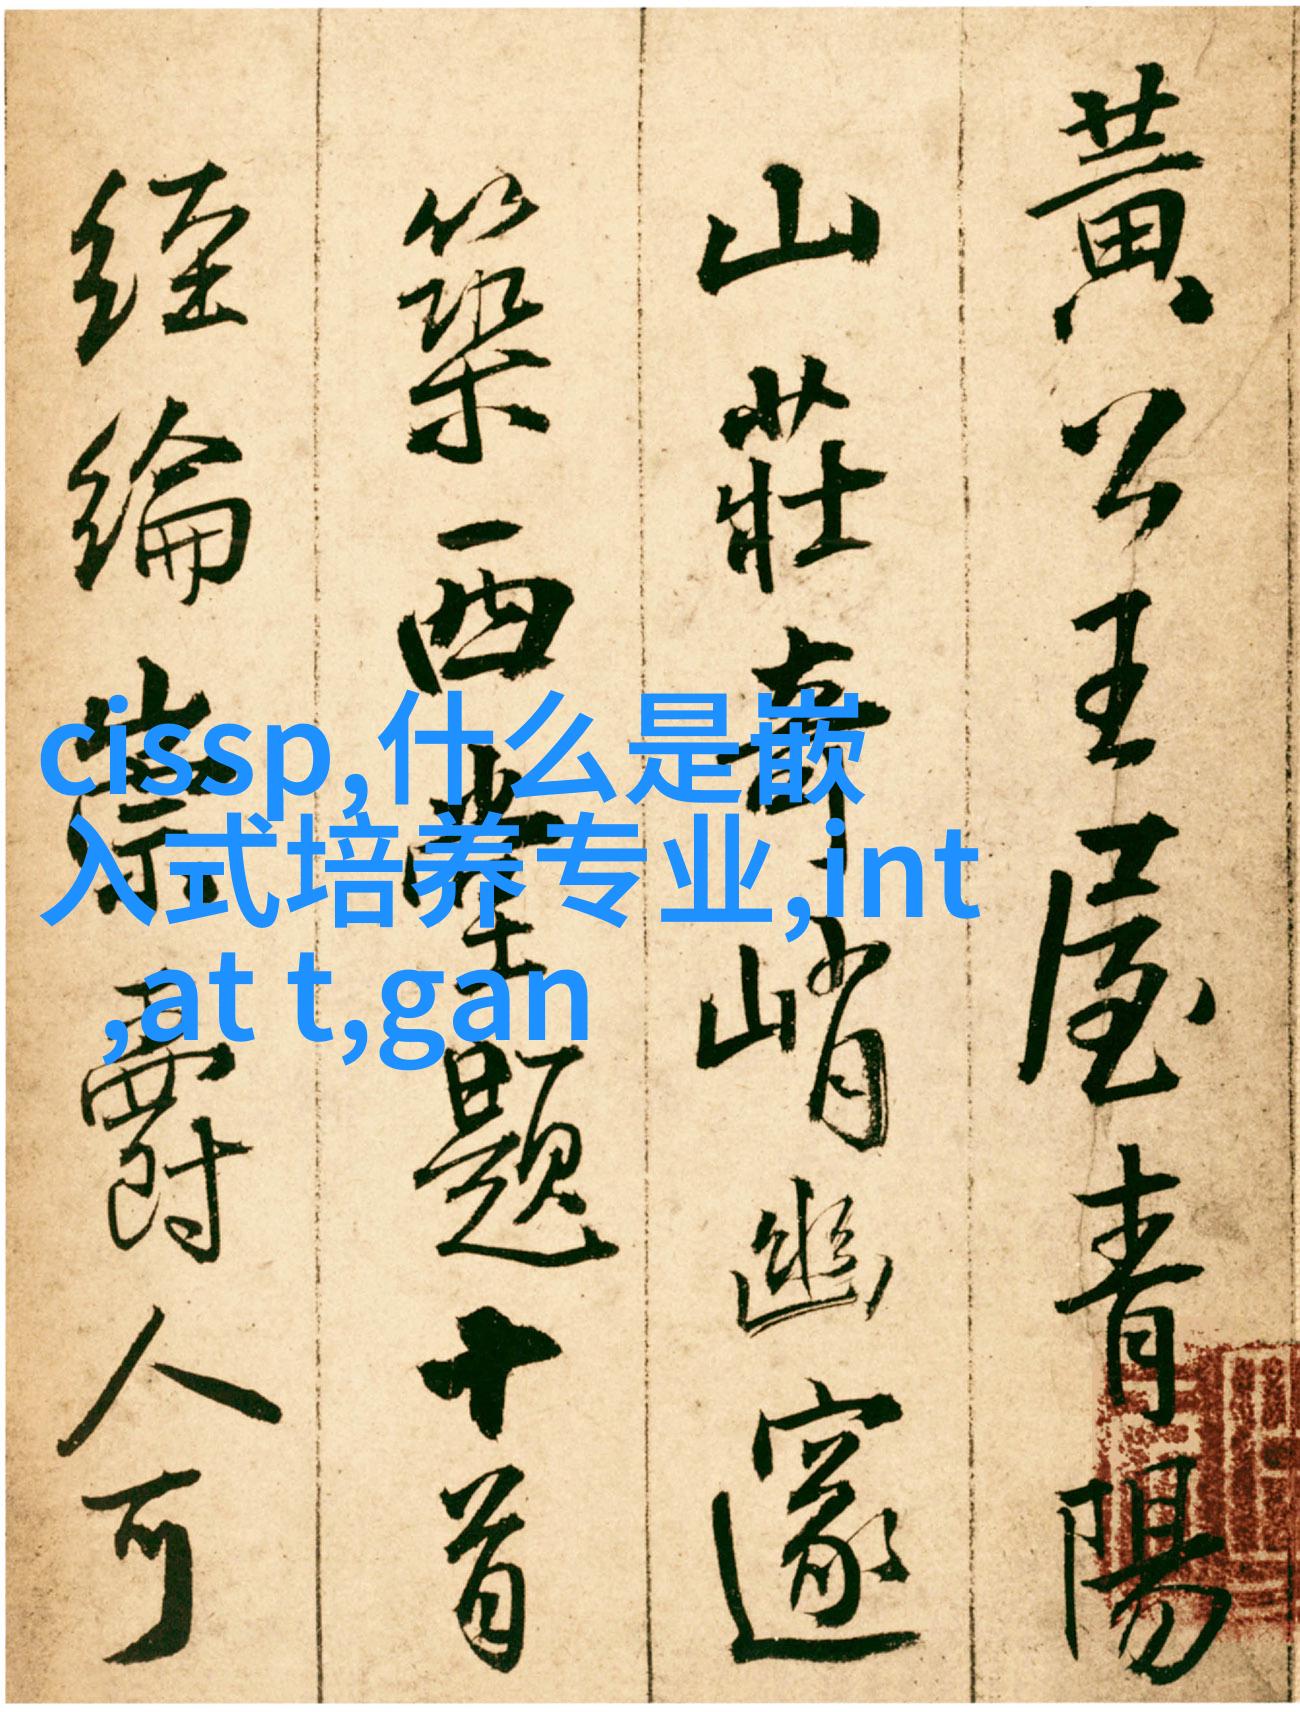 黃公王屋青陽
山莊奇峭幽邃
築西堂題十首
經綸崇爵人可
cissp,什么是嵌
入式培养专业,int
,at t,gan